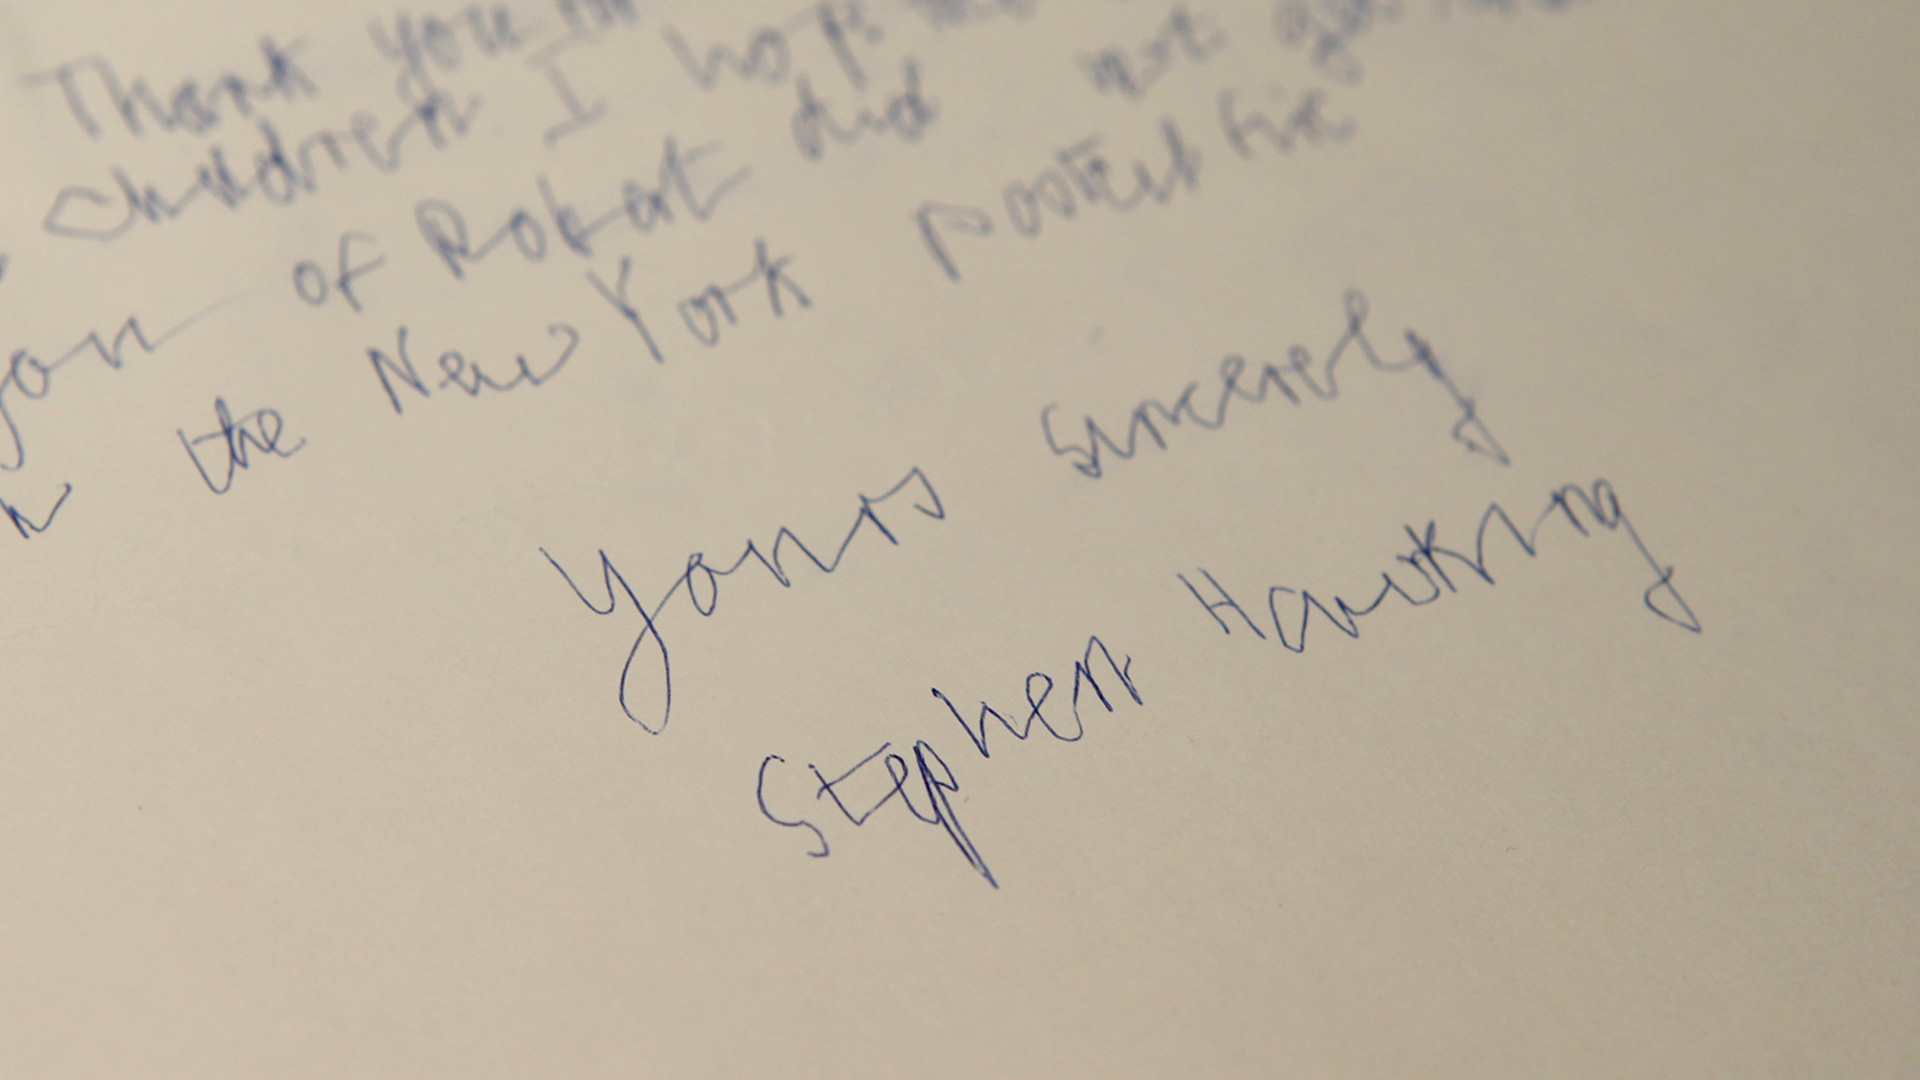 Thank you
children I hope
of Robert did not
the New York postal
Yours sincerely
Stephen Hawking